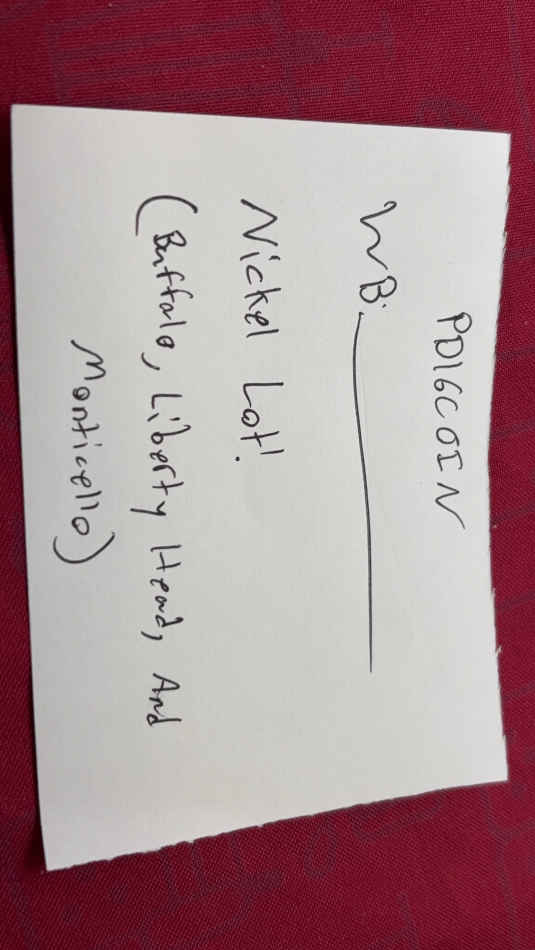 PD16COIN
WB:
Nickel Lot!
(Buffalo, Liberty Head, And
Monticello)